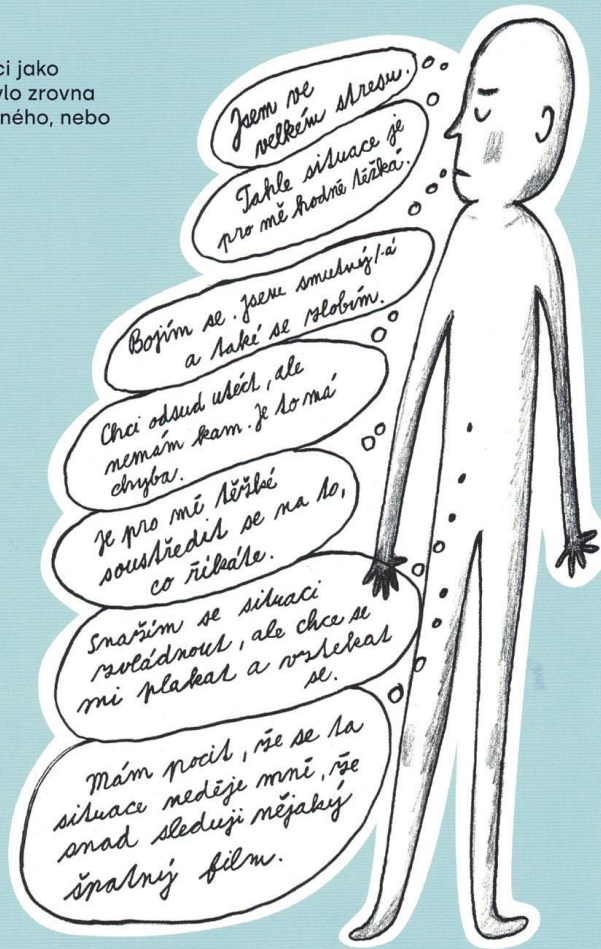 ci jako
ylo zrovna
ného, nebo
Jsem ve
velkém stresu.
Tahle situace je
pro mě hodně těžká.
Bojím se. Jsem smutný/-á
a také se zlobím.
Chci odsud utéct, ale
nemám kam. Je to má
chyba.
Je pro mě těžké
soustředit se na to,
co říkáte.
Snažím se situaci
zvládnout, ale chce se
mi plakat a vztekat
se.
Mám pocit, že se ta
situace neděje mně, že
snad sleduji nějaký
špatný film.